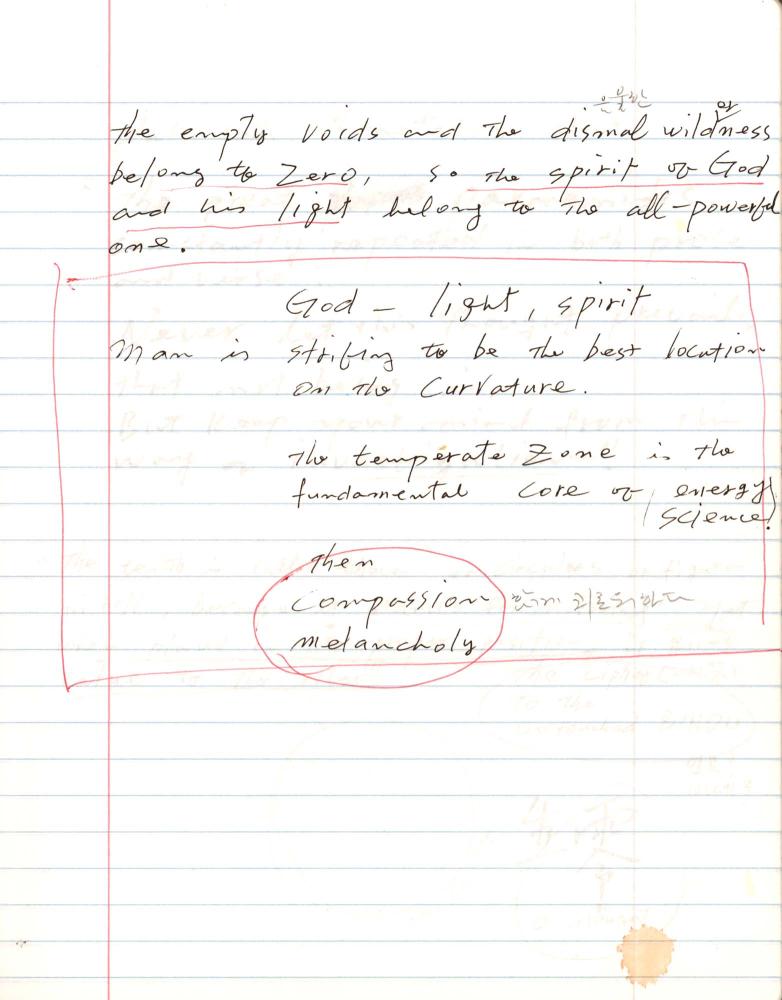 the empty voids and the dismal wildness
belong to Zero, so the spirit of God
and his light belong to the all-powerful
one.
God - light, spirit
Man is strifing to be the best location
on the Curvature.
The temperate Zone is the
fundamental core of energy
science!
then
compassion 함께 괴로워하다
melancholy